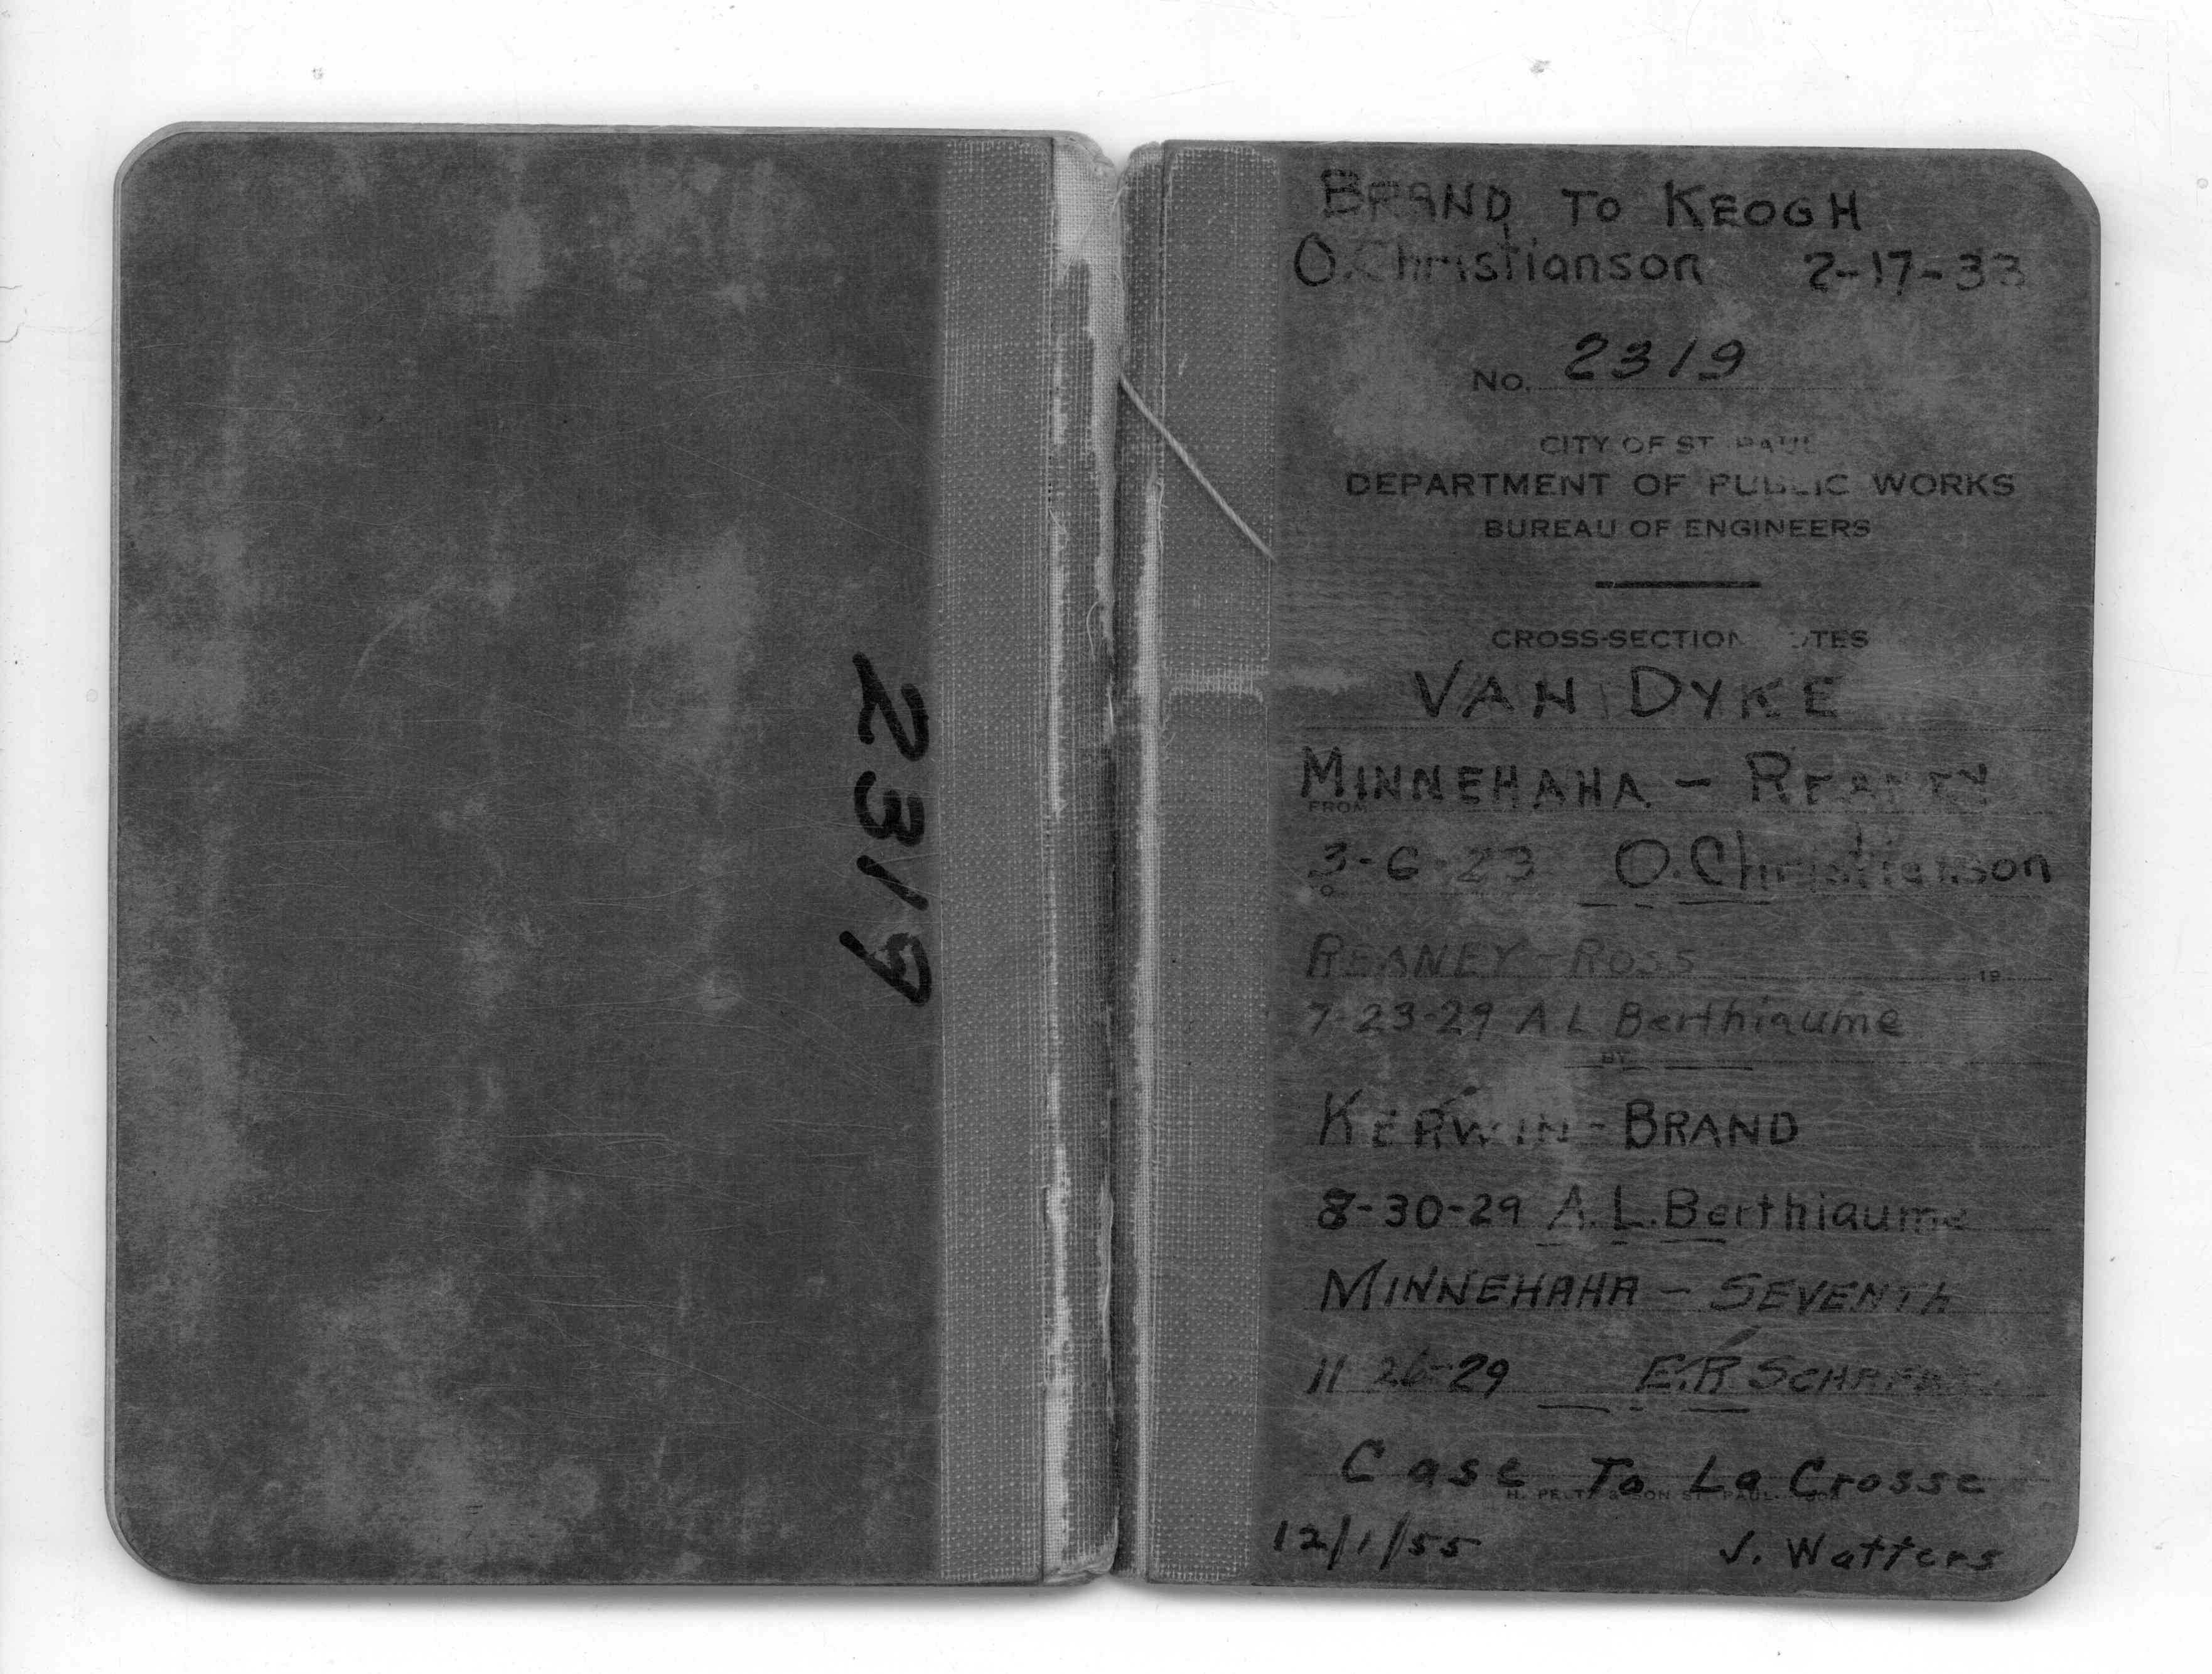 2319
BRAND TO KEOGH
O. Christianson 2-17-33
No. 2319
CITY OF ST. PAUL
DEPARTMENT OF PUBLIC WORKS
BUREAU OF ENGINEERS
CROSS-SECTION NOTES
VAN DYKE
MINNEHAHA - REANEY
FROM
3-6-23 O. Christianson
TO
REANEY - ROSS
19
7-23-29 A L Berthiaume
BY
KERWIN - BRAND
8-30-29 A. L. Berthiaume
MINNEHAHA - SEVENTH
11-26-29 E.R.
Case To La Crosse
H. PELTZ & SON ST. PAUL
12/1/55 J. Watters